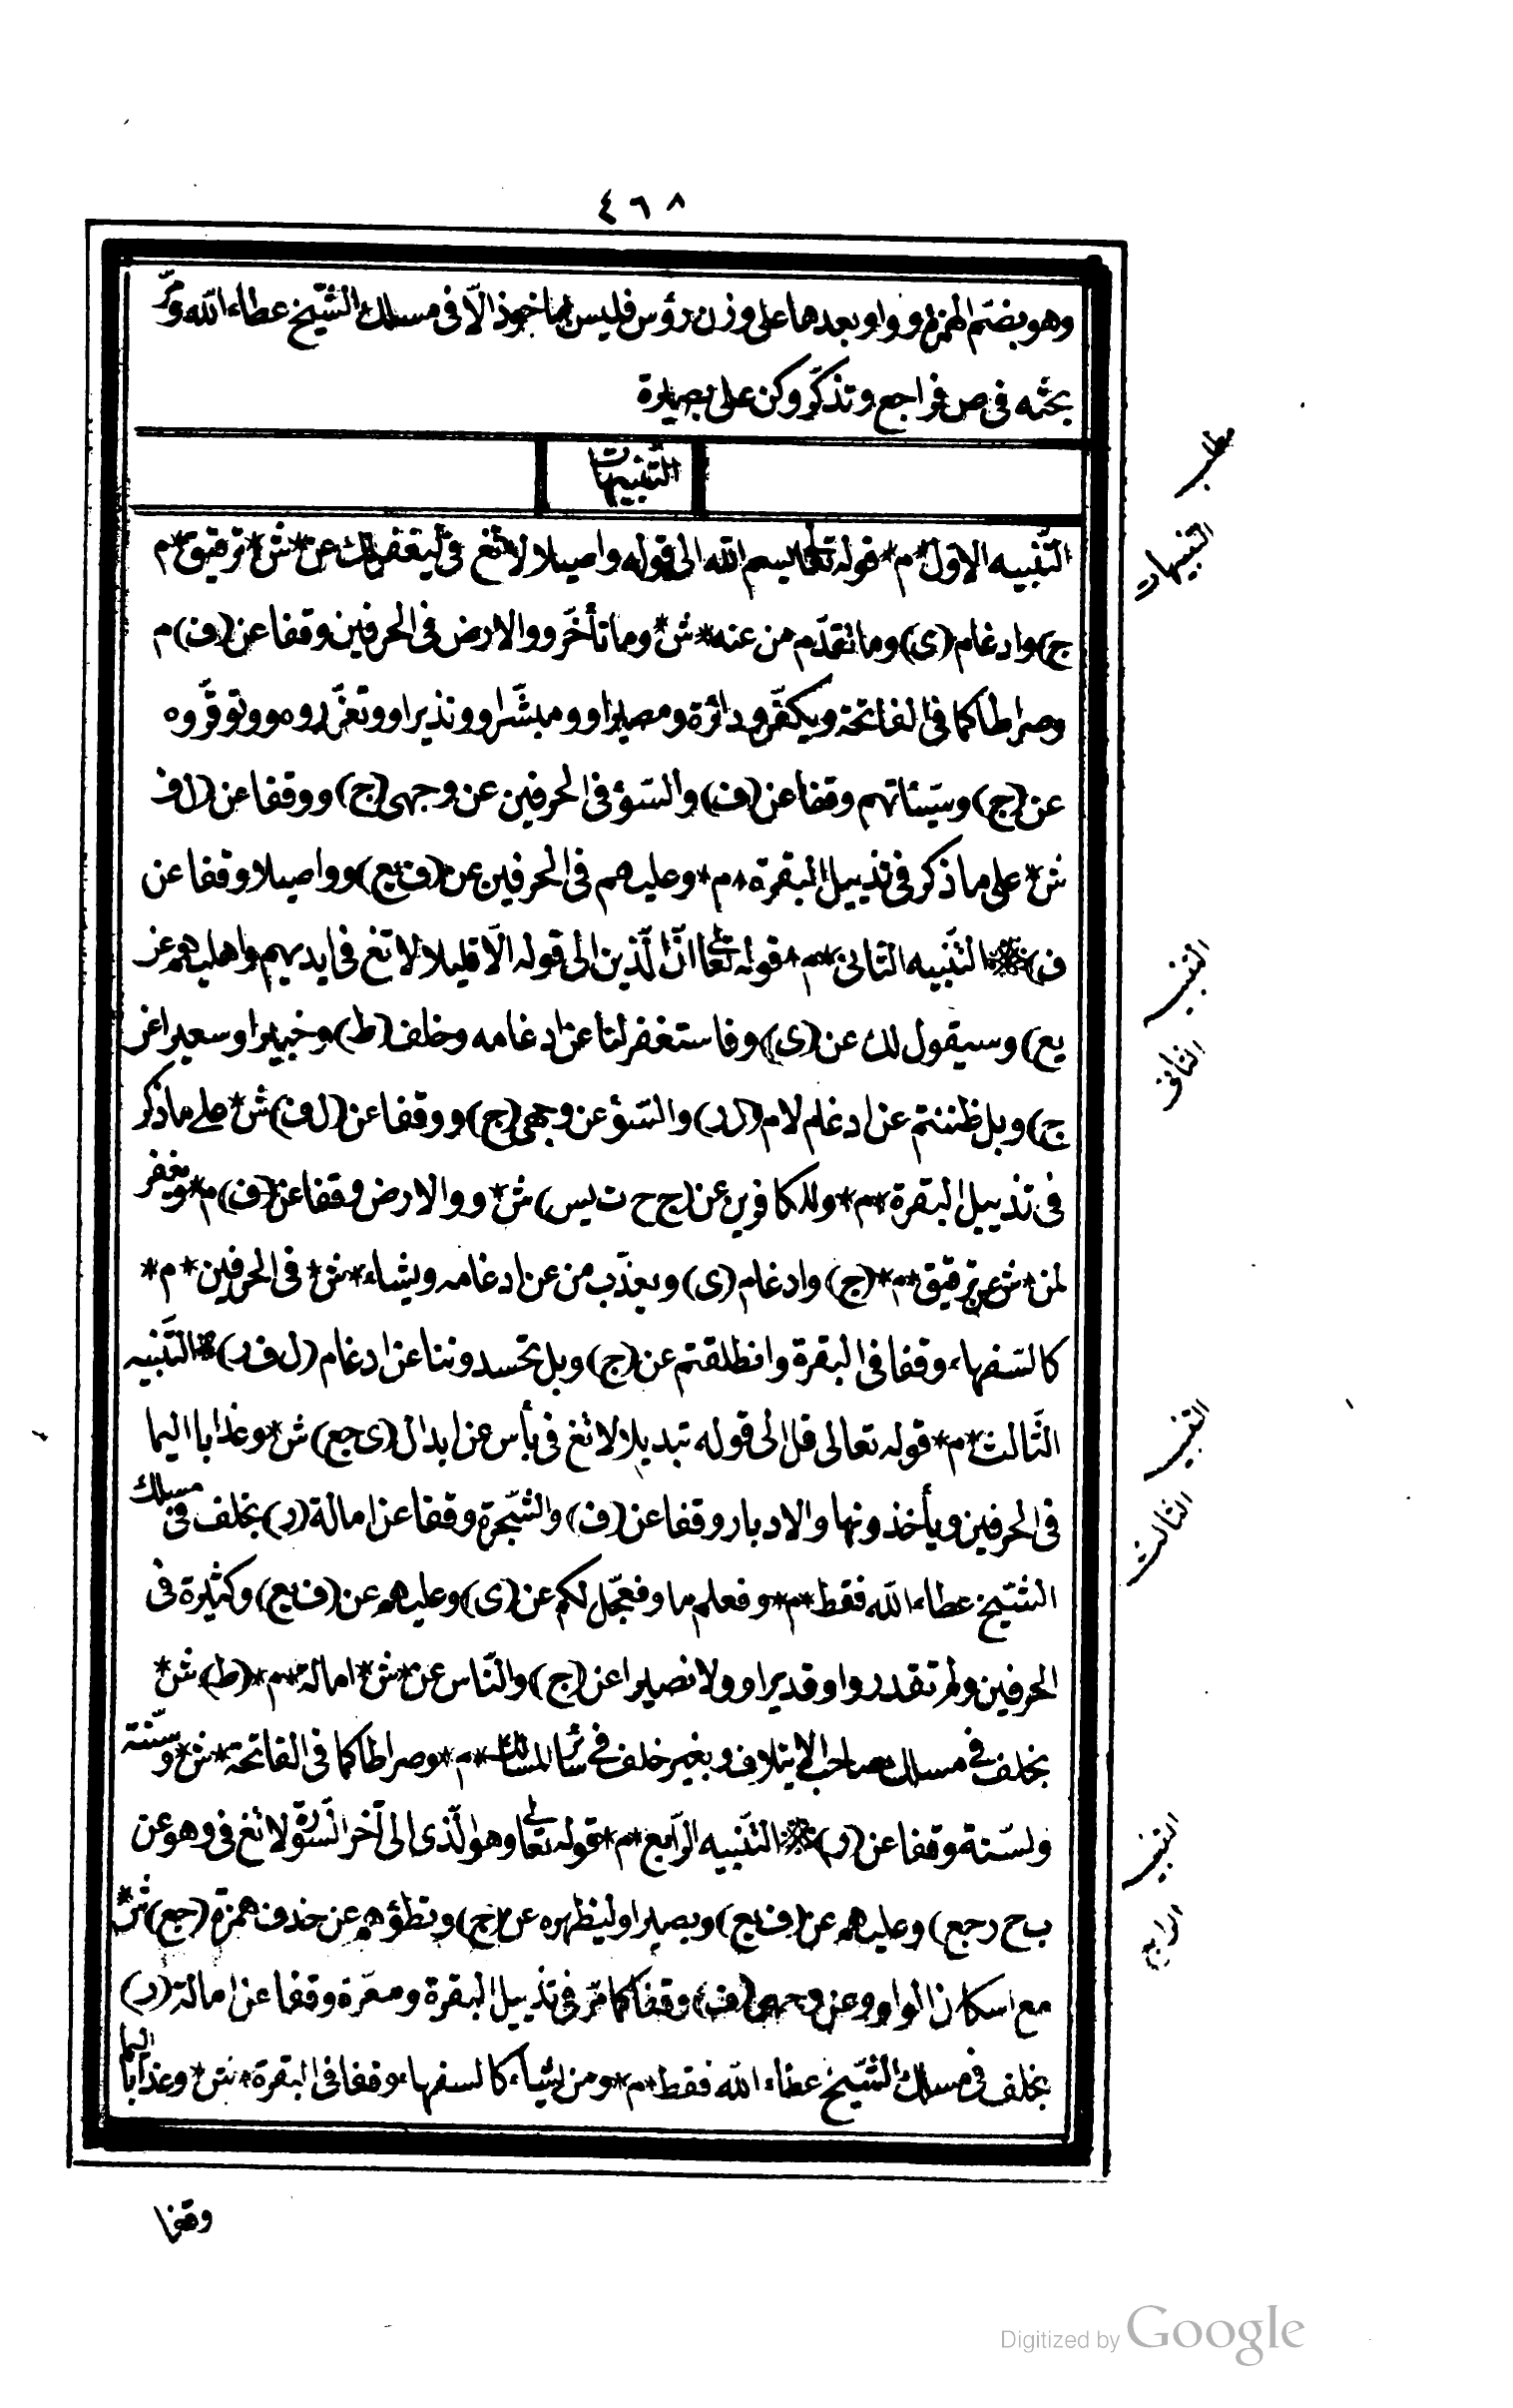 ٤٦٨
وهو بضم الهمزة وواو بعدها على وزن رؤس فليس بماخوذ الّا فى مسلك الشّيخ عطاء اللّه ومرّ
بحثه فى ص فراجع وتذكّر وكن على بصيرة
التّنبيهات
التّنبيه الاوّل *م* قوله تعالى بسم اللّه الى قوله واصيلا لا تغ فى ليغفر لك عن *ش* ترقيق *م
ج) وادغام (ى) وما تقدّم من عنه *ش* وما تأخّر ووالارض فى الحرفين وقفا عن (ف) م
وصراطا كما فى الفاتحة ويكفّر ودائرة ومصيرا وومبشّرا وونذيرا ووتعزّروه ووتوقّروه
عن (ج) وسيّئاتهم وقفا عن (ف) والسّوْء فى الحرفين عن وجهى (ج) ووقفا عن (ل ف
ش* على ما ذكر فى تذييل البقرة *م* وعليهم فى الحرفين عن (ف يع) وواصيلا وقفا عن
ف) * التّنبيه الثانى *م* قوله تعالى انّ الّذين الى قوله الّا قليلا لا تغ فى ايديهم واهليهم عن
يع) وسيقول لك عن (ى) وفاستغفر لنا عن ادغامه وخلف (ط) وخبيرا وسعيرا عن
ج) وبل ظننتم عن ادغام لام (ل ر) والسّوْء عن وجهى (ج) ووقفا عن (ل ف) ش* على ما ذكر
فى تذييل البقرة *م* وللكافرين عن (ج ح ت يس) ش* ووالارض وقفا عن (ف) م* ويغفر
لمن *ش عن ترقيق *م* (ج) وادغام (ى) ويعذّب من عن ادغامه ويشاء *ش* فى الحرفين *م*
كالسّفهاء وقفا فى البقرة وانطلقتم عن (ج) وبل تحسدوننا عن ادغام (ل ف ر) * التّنبيه
الثّالث *م* قوله تعالى قل الى قوله تبديلا لا تغ فى بأس عن ابدال (ى جع) ش* وعذابا اليما
فى الحرفين ويأخذونها والادبار وقفا عن (ف) والشّجرة وقفا عن امالة (ر) بخلف فى مسلك
الشّيخ عطاء اللّه فقط *م* وفعلم ما وفعجّل لكم عن (ى) وعليهم عن (ف يع) وكثيرة فى
الحرفين ولم تقدروا وقديرا وولا نصيرا عن (ج) والنّاس عن *ش* امالة *م* (ط) ش*
بخلف فى مسلك صاحب الايتلاف وبغير خلف فى سائر المسالك *م* وصراطا كما فى الفاتحة *ش* وسنّة
ولسنّة وقفا عن (ر) * التّنبيه الرّابع *م* قوله تعالى وهو الّذى الى آخر السّورة لا تغ فى وهو عن
ب ح ر جع) وعليهم عن (ف يع) وبصيرا وليظهره عن (ج) وتطؤهم عن حذف همزة (جع) ش*
مع اسكان الواو وعن وجهى (ف) وقفا كما مرّ فى تذييل البقرة ومعرّة وقفا عن امالة (ر)
بخلف فى مسلك الشّيخ عطاء اللّه فقط *م* ومن يشاء كالسفهاء وقفا فى البقرة *ش* وعذابا اليما
وقفا
مطلب
التنبيهات
التنبيه
الثانى
التنبيه
الثالث
التنبيه
الرابع
Digitized by Google